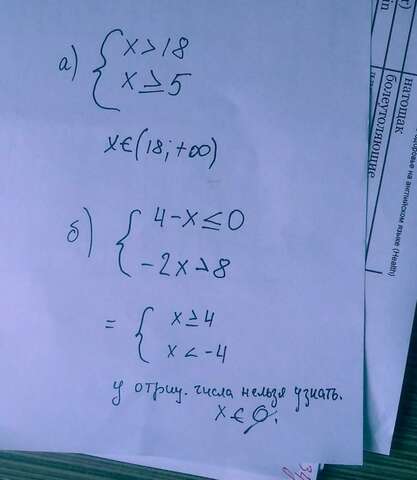 а) { x > 18
x ≥ 5
x ∈ (18; +∞)
б) { 4 - x ≤ 0
-2x > 8
= { x ≥ 4
x < -4
у отриц. числа нельзя узнать.
x ∈ ∅.
натощак
болеутоляющие
здоровье на английском языке (Health)